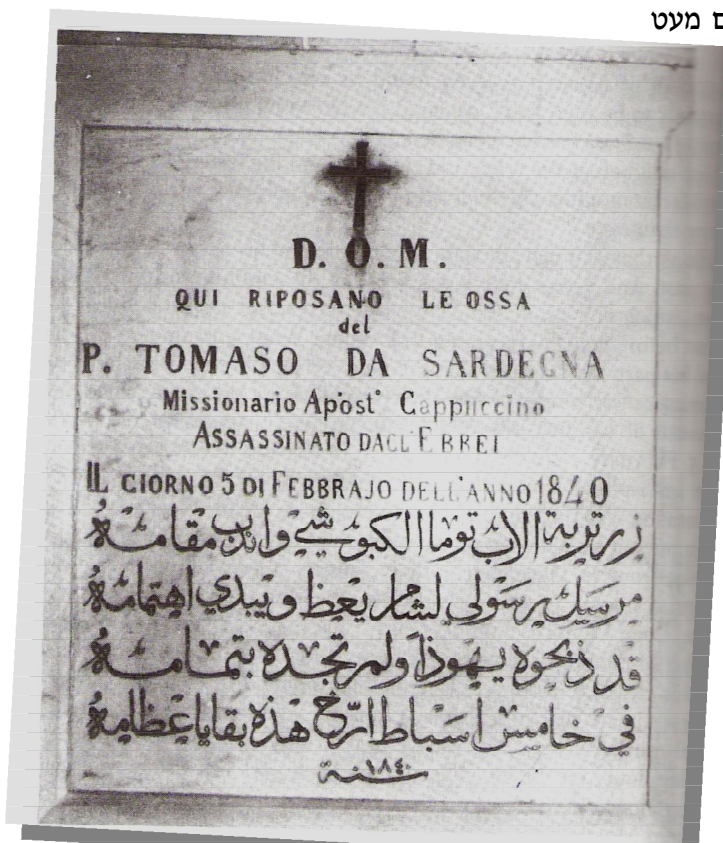 ם מעט
D. O. M.
QUI RIPOSANO LE OSSA
del
P. TOMASO DA SARDEGNA
Missionario Apost° Cappuccino
ASSASSINATO DAGL'EBREI
IL GIORNO 5 DI FEBBRAJO DELL'ANNO 1840
زر تربة الاب توما الكبوشي واندب مقامه
مرسيل برسولي لشام يعظ ويبدي اهتمامه
قد ذبحوه يهوذا ولم تجده بتمامه
في خامس اسباط ارّخ هذه بقايا عظامه
سنة ١٨٤٠